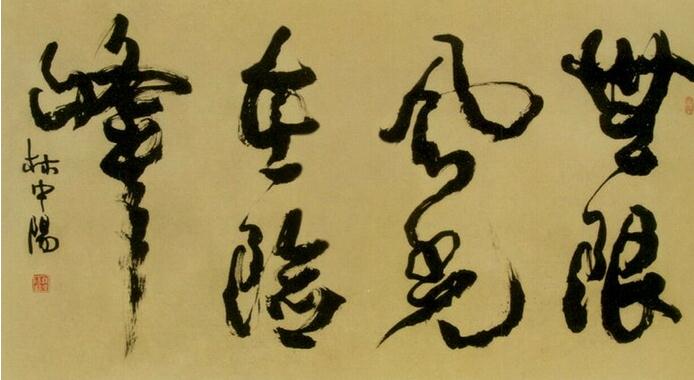 無限
風光
在險
峰
林中陽